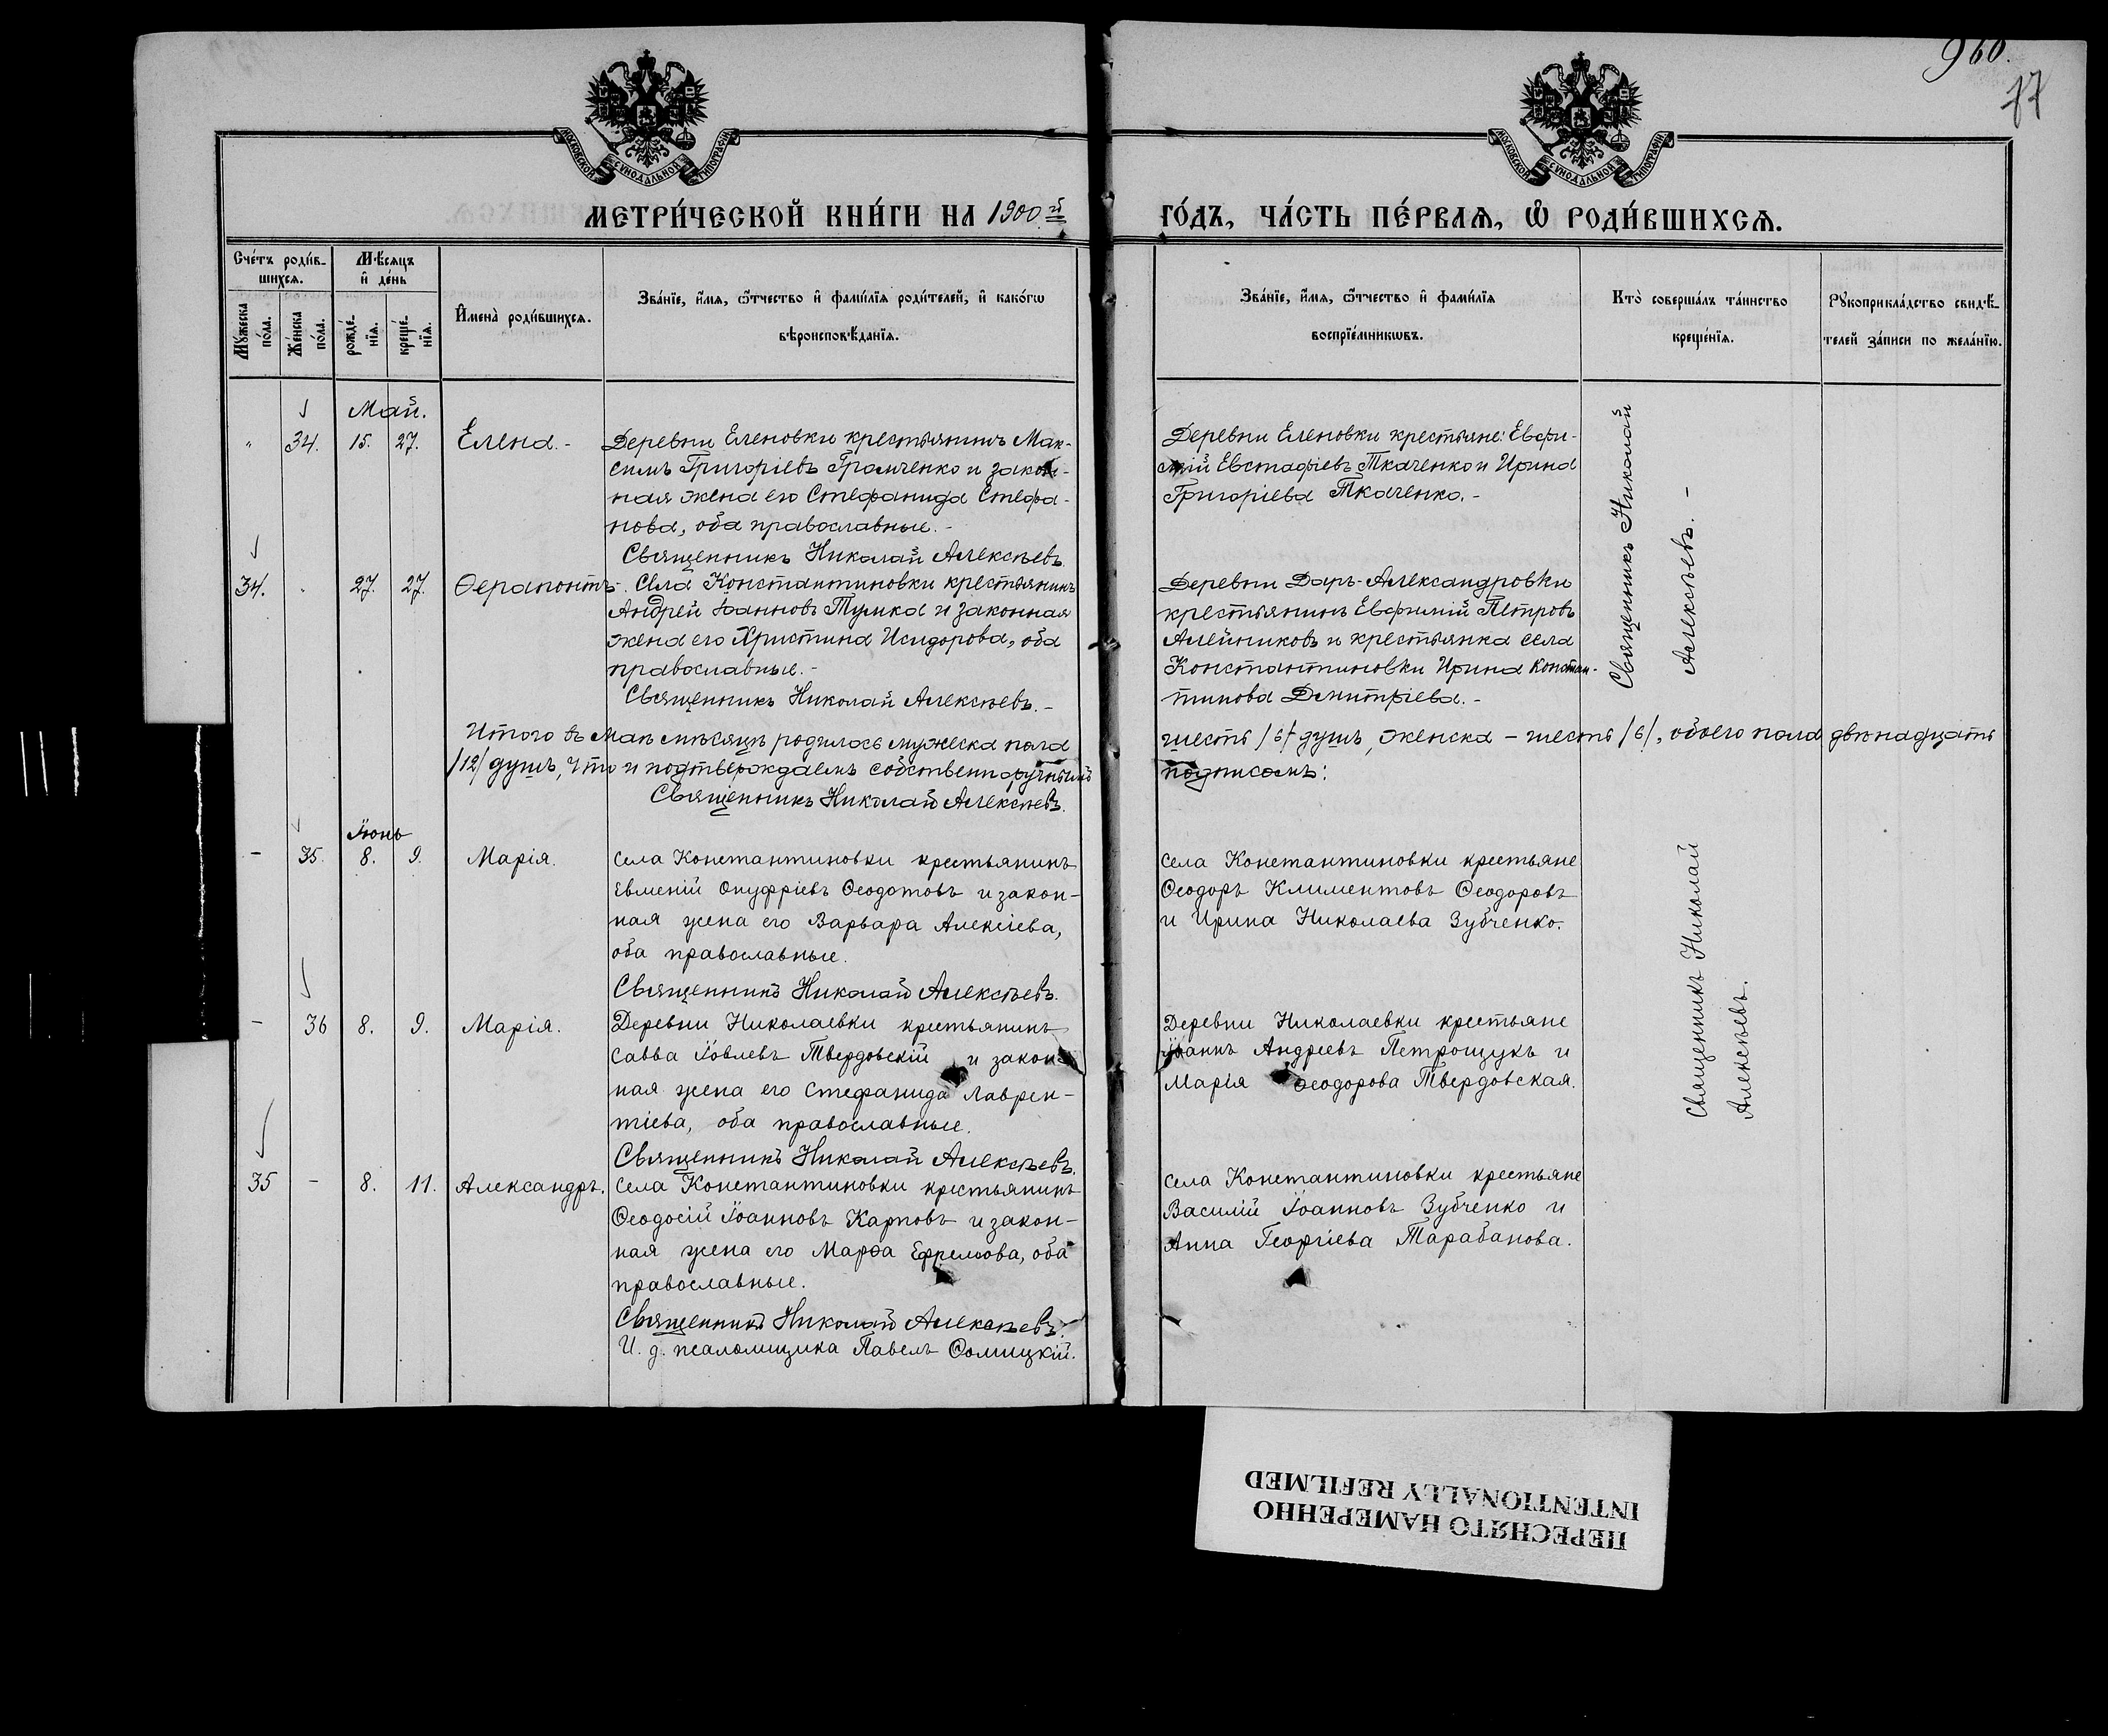 960.
77
МОСКОВСКОЙ СѴНОДАЛЬНОЙ ТИПОГРАФІИ
МОСКОВСКОЙ СѴНОДАЛЬНОЙ ТИПОГРАФІИ
МЕТРИ́ЧЕСКОЙ КНИ́ГИ НА 1900.й
ГО́ДЪ, ЧА́СТЬ ПЕ́РВАѦ, Ѽ РОДИ́ВШИХСѦ.
Сче́тъ роди́в-
шихсѧ.
Мꙋ́жеска
по́ла.
Же́нска
по́ла.
Мѣ́сяцъ
и҆ де́нь
рожде́-
нїѧ.
креще́-
нїѧ.
И҆мена̀ роди́вшихсѧ.
Зва́нїе, и҆́мѧ, ѻ҆́тчество и҆ фами́лїѧ роди́телей, и҆ како́гѡ
вѣроисповѣ́данїѧ.
Зва́нїе, и҆́мѧ, ѻ҆́тчество и҆ фами́лїѧ
воспрїе́мникѡвъ.
Кто̀ соверша́лъ та́инство
креще́нїѧ.
Рꙋкоприкла́дство свидѣ́-
телей за́писи по жела́нїю.
Май.
" 34. 15. 27. Елена.-
Деревни Еленовки крестьянинъ Мак-
симъ Григоріевъ Громченко и закон-
ная жена его Стефанида Стефа-
нова, оба православные.-
Священникъ Николай Алексѣевъ.
Деревни Еленовки крестьяне: Евфи-
мій Евстафіевъ Ткаченко и Ирина
Григоріева Ткаченко.-
Священникъ Николай
Алексѣевъ.-
34. . 27. 27. Ѳерапонтъ.
Села Константиновки крестьянинъ
Андрей Іоанновъ Тумка и законная
жена его Христина Исидорова, оба
православные.-
Священникъ Николай Алексѣевъ.-
Деревни Даръ-Александровки
крестьянинъ Евфимій Петровъ
Алейниковъ и крестьянка села
Константиновки Ирина Констан-
тинова Дмитріева.-
Итого въ маѣ мѣсяцѣ родилось мужеска пола шесть /6/ душъ, женска - шесть /6/, обоего пола двѣнадцать
/12/ душъ, что и подтверждаемъ собственноручнымъ подписомъ:
Священникъ Николай Алексѣевъ.
Іюнь
- 35. 8. 9. Марія.
села Константиновки крестьянинъ
Евменій Онуфріевъ Ѳеодотовъ и закон-
ная жена его Варвара Алексіева,
оба православные.
Священникъ Николай Алексѣевъ.
села Константиновки крестьяне
Ѳеодоръ Климентовъ Ѳеодоровъ
и Ирина Николаева Зубченко.
Священникъ Николай
Алексѣевъ.
- 36 8. 9. Марія.
Деревни Николаевки крестьянинъ
Савва Іовлевъ Твердовскій и закон-
ная жена его Стефанида Лаврен-
тіева, оба православные.
Священникъ Николай Алексѣевъ.
Деревни Николаевки крестьяне
Іоаннъ Андреевъ Петрощукъ и
Марія Ѳеодорова Твердовская.
35 - 8. 11. Александръ.
села Константиновки крестьянинъ
Ѳеодосій Іоанновъ Карповъ и закон-
ная жена его Марѳа Ефремова, оба
православные.
Священникъ Николай Алексѣевъ.
И. д. псаломщика Павелъ Ѳомицкій.
села Константиновки крестьяне
Василій Іоанновъ Зубченко и
Анна Георгіева Тарабанова.
ПЕРЕСНЯТО НАМЕРЕННО
INTENTIONALLY REFILMED